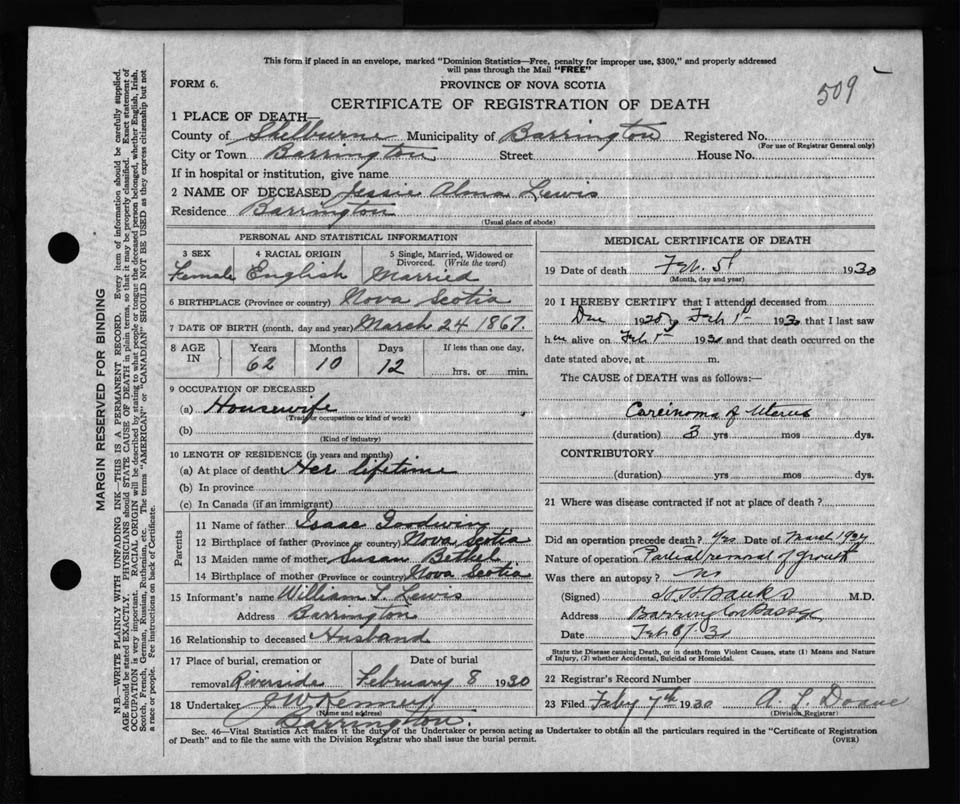 This form if placed in an envelope, marked "Dominion Statistics—Free, penalty for improper use, $300," and properly addressed
will pass through the Mail "FREE"
FORM 6.
PROVINCE OF NOVA SCOTIA
509
CERTIFICATE OF REGISTRATION OF DEATH
1 PLACE OF DEATH—
County of Shelburne Municipality of Barrington Registered No.
(For use of Registrar General only)
City or Town Barrington Street House No.
If in hospital or institution, give name
2 NAME OF DECEASED Jessie Alma Lewis
Residence Barrington
(Usual place of abode)
PERSONAL AND STATISTICAL INFORMATION
3 SEX 4 RACIAL ORIGIN 5 Single, Married, Widowed or
Divorced. (Write the word)
Female English Married
6 BIRTHPLACE (Province or country) Nova Scotia
7 DATE OF BIRTH (month, day and year) March 24 1867.
8 AGE IN Years Months Days If less than one day,
62 10 12 hrs. or min.
9 OCCUPATION OF DECEASED
(a) Housewife
(Trade, occupation or kind of work)
(b)
(Kind of industry)
10 LENGTH OF RESIDENCE (in years and months)
(a) At place of death Her lifetime
(b) In province
(c) In Canada (if an immigrant)
Parents
11 Name of father Isaac Goodwin
12 Birthplace of father (Province or country) Nova Scotia
13 Maiden name of mother Susan Bethel
14 Birthplace of mother (Province or country) Nova Scotia
15 Informant's name William T. Lewis
Address Barrington
16 Relationship to deceased Husband
17 Place of burial, cremation or Date of burial
removal Riverside February 8 1930
18 Undertaker J W Kenney
(Name and address)
Barrington.
MEDICAL CERTIFICATE OF DEATH
19 Date of death Feb. 5 1930
(Month, day and year)
20 I HEREBY CERTIFY that I attended deceased from
1929 Feb 1st 1930 that I last saw
her alive on Feb 1st 1930 and that death occurred on the
date stated above, at m.
The CAUSE of DEATH was as follows:—
Carcinoma of Uterus
(duration) 3 yrs mos dys.
CONTRIBUTORY
(duration) yrs mos dys.
21 Where was disease contracted if not at place of death?
Did an operation precede death? Yes Date of March 1927
Nature of operation Partial removal of growth
Was there an autopsy? no
(Signed) Banks M.D.
Address Barrington Passage
Date Feb 30
State the Disease causing Death, or in death from Violent Causes, state (1) Means and Nature
of Injury, (2) whether Accidental, Suicidal or Homicidal.
22 Registrar's Record Number
23 Filed Feby 7th 1930 A. L. Doane
(Division Registrar)
Sec. 46—Vital Statistics Act makes it the duty of the Undertaker or person acting as Undertaker to obtain all the particulars required in the "Certificate of Registration
of Death" and to file the same with the Division Registrar who shall issue the burial permit.
(OVER)
MARGIN RESERVED FOR BINDING
N.B.—WRITE PLAINLY WITH UNFADING INK—THIS IS A PERMANENT RECORD. Every item of information should be carefully supplied.
AGE should be stated EXACTLY. PHYSICIANS should STATE CAUSE OF DEATH in plain terms, so that it may be properly classified. Exact statement of
OCCUPATION is very important. RACIAL ORIGIN will be described by stating to what people or tongue the deceased person belonged, whether English, Irish,
Scotch, French, German, Russian, Ruthenian, etc. The terms "AMERICAN" or "CANADIAN" SHOULD NOT BE USED as they express citizenship but not
a race or people. Fee instructions on back of Certificate.